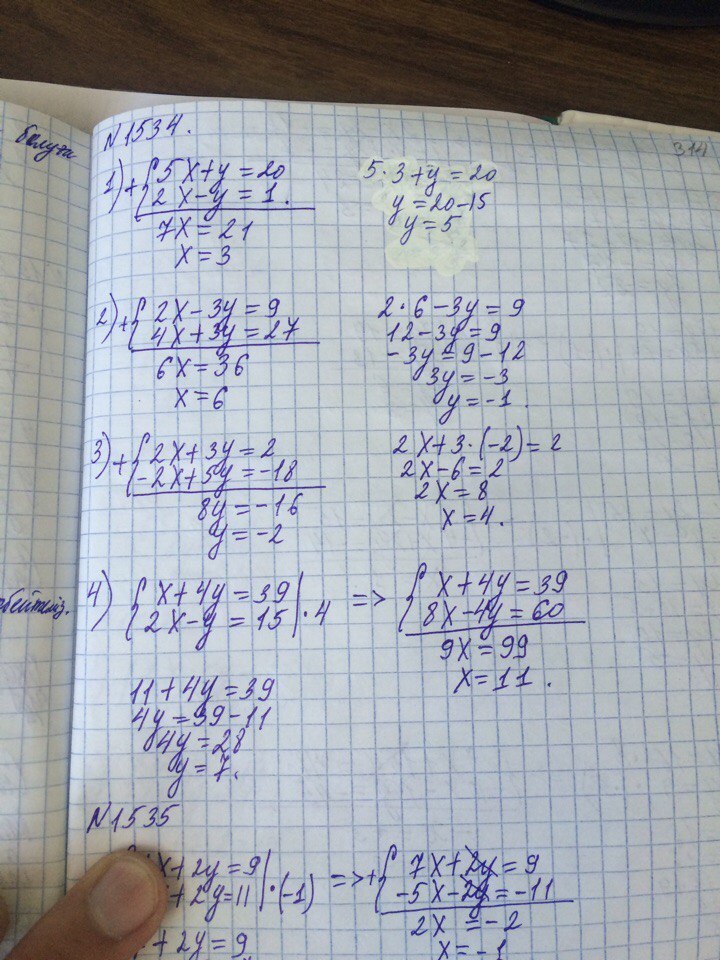 болуға
N1534.
314
1) + { 5x+y=20
2x-y=1.
7x=21
x=3
5·3+y=20
y=20-15
y=5
2) + { 2x-3y=9
4x+3y=27
6x=36
x=6
2·6-3y=9
12-3y=9
-3y=9-12
3y=-3
y=-1.
3) + { 2x+3y=2
-2x+5y=-18
8y=-16
y=-2
2x+3·(-2)=2
2x-6=2
2x=8
x=4.
4) { x+4y=39
2x-y=15 | ·4
=> { x+4y=39
8x-4y=60
9x=99
x=11.
11+4y=39
4y=39-11
4y=28
y=7.
N1535
x+2y=9
+2y=11 | ·(-1)
+2y=9
=> + { 7x+2y=9
-5x-2y=-11
2x=-2
x=-1